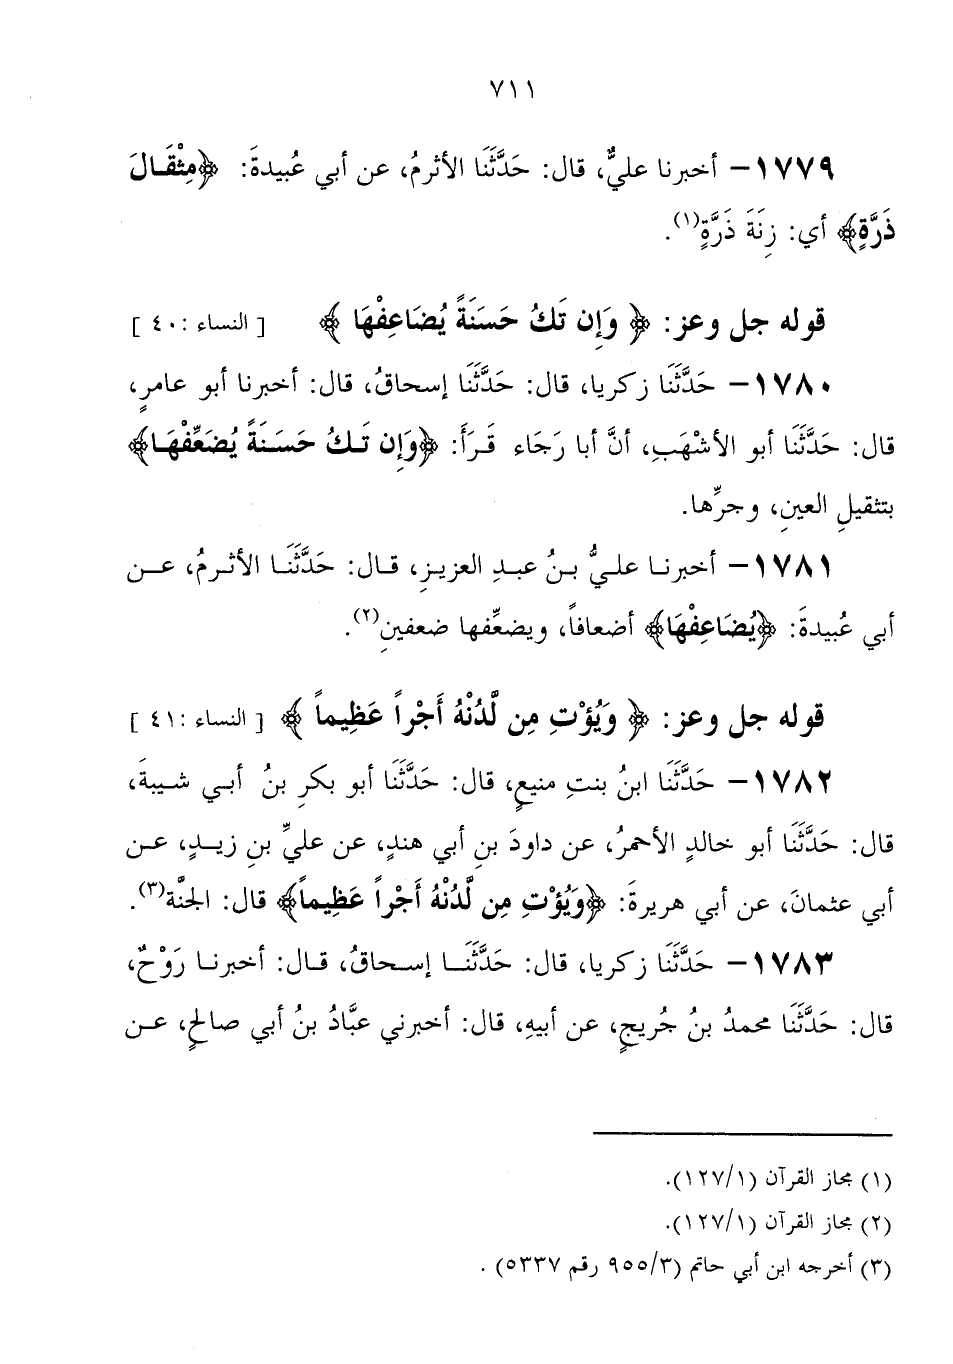 ٧١١
١٧٧٩– أخبرنا عليٌّ، قال: حَدَّثَنَا الأثرمُ، عن أبي عُبيدةَ: ﴿مِثْقَالَ
ذَرَّةٍ﴾ أي: زِنَةَ ذَرَّةٍ(١).
قوله جل وعز: ﴿ وَإِن تَكُ حَسَنَةً يُضَاعِفْهَا ﴾ [ النساء :٤٠ ]
١٧٨٠– حَدَّثَنَا زكريا، قال: حَدَّثَنَا إسحاقُ، قال: أخبرنا أبو عامرٍ،
قال: حَدَّثَنَا أبو الأشْهَبِ، أنَّ أبا رَجَاء قَرَأَ: ﴿وَإِن تَكُ حَسَنَةً يُضَعِّفْهَا﴾
بتثقيلِ العينِ، وجرِّها.
١٧٨١– أخبرنا عليُّ بنُ عبدِ العزيزِ، قال: حَدَّثَنَا الأثرمُ، عن
أبي عُبيدةَ: ﴿يُضَاعِفْهَا﴾ أضعافاً، ويضعِّفها ضعفينِ(٢).
قوله جل وعز: ﴿ وَيُؤْتِ مِن لَّدُنْهُ أَجْراً عَظِيماً ﴾ [ النساء :٤١ ]
١٧٨٢– حَدَّثَنَا ابنُ بنتِ منيعٍ، قال: حَدَّثَنَا أبو بكرِ بنُ أبي شيبةَ،
قال: حَدَّثَنَا أبو خالدٍ الأحمرُ، عن داودَ بنِ أبي هندٍ، عن عليِّ بنِ زيدٍ، عن
أبي عثمانَ، عن أبي هريرةَ: ﴿وَيُؤْتِ مِن لَّدُنْهُ أَجْراً عَظِيماً﴾ قال: الجنَّة(٣).
١٧٨٣– حَدَّثَنَا زكريا، قال: حَدَّثَنَا إسحاقُ، قال: أخبرنا رَوْحٌ،
قال: حَدَّثَنَا محمدُ بنُ جُريجٍ، عن أبيهِ، قال: أخبرني عبَّادُ بنُ أبي صالحٍ، عن
(١) مجاز القرآن (١٢٧/١).
(٢) مجاز القرآن (١٢٧/١).
(٣) أخرجه ابن أبي حاتم (٩٥٥/٣ رقم ٥٣٣٧) .